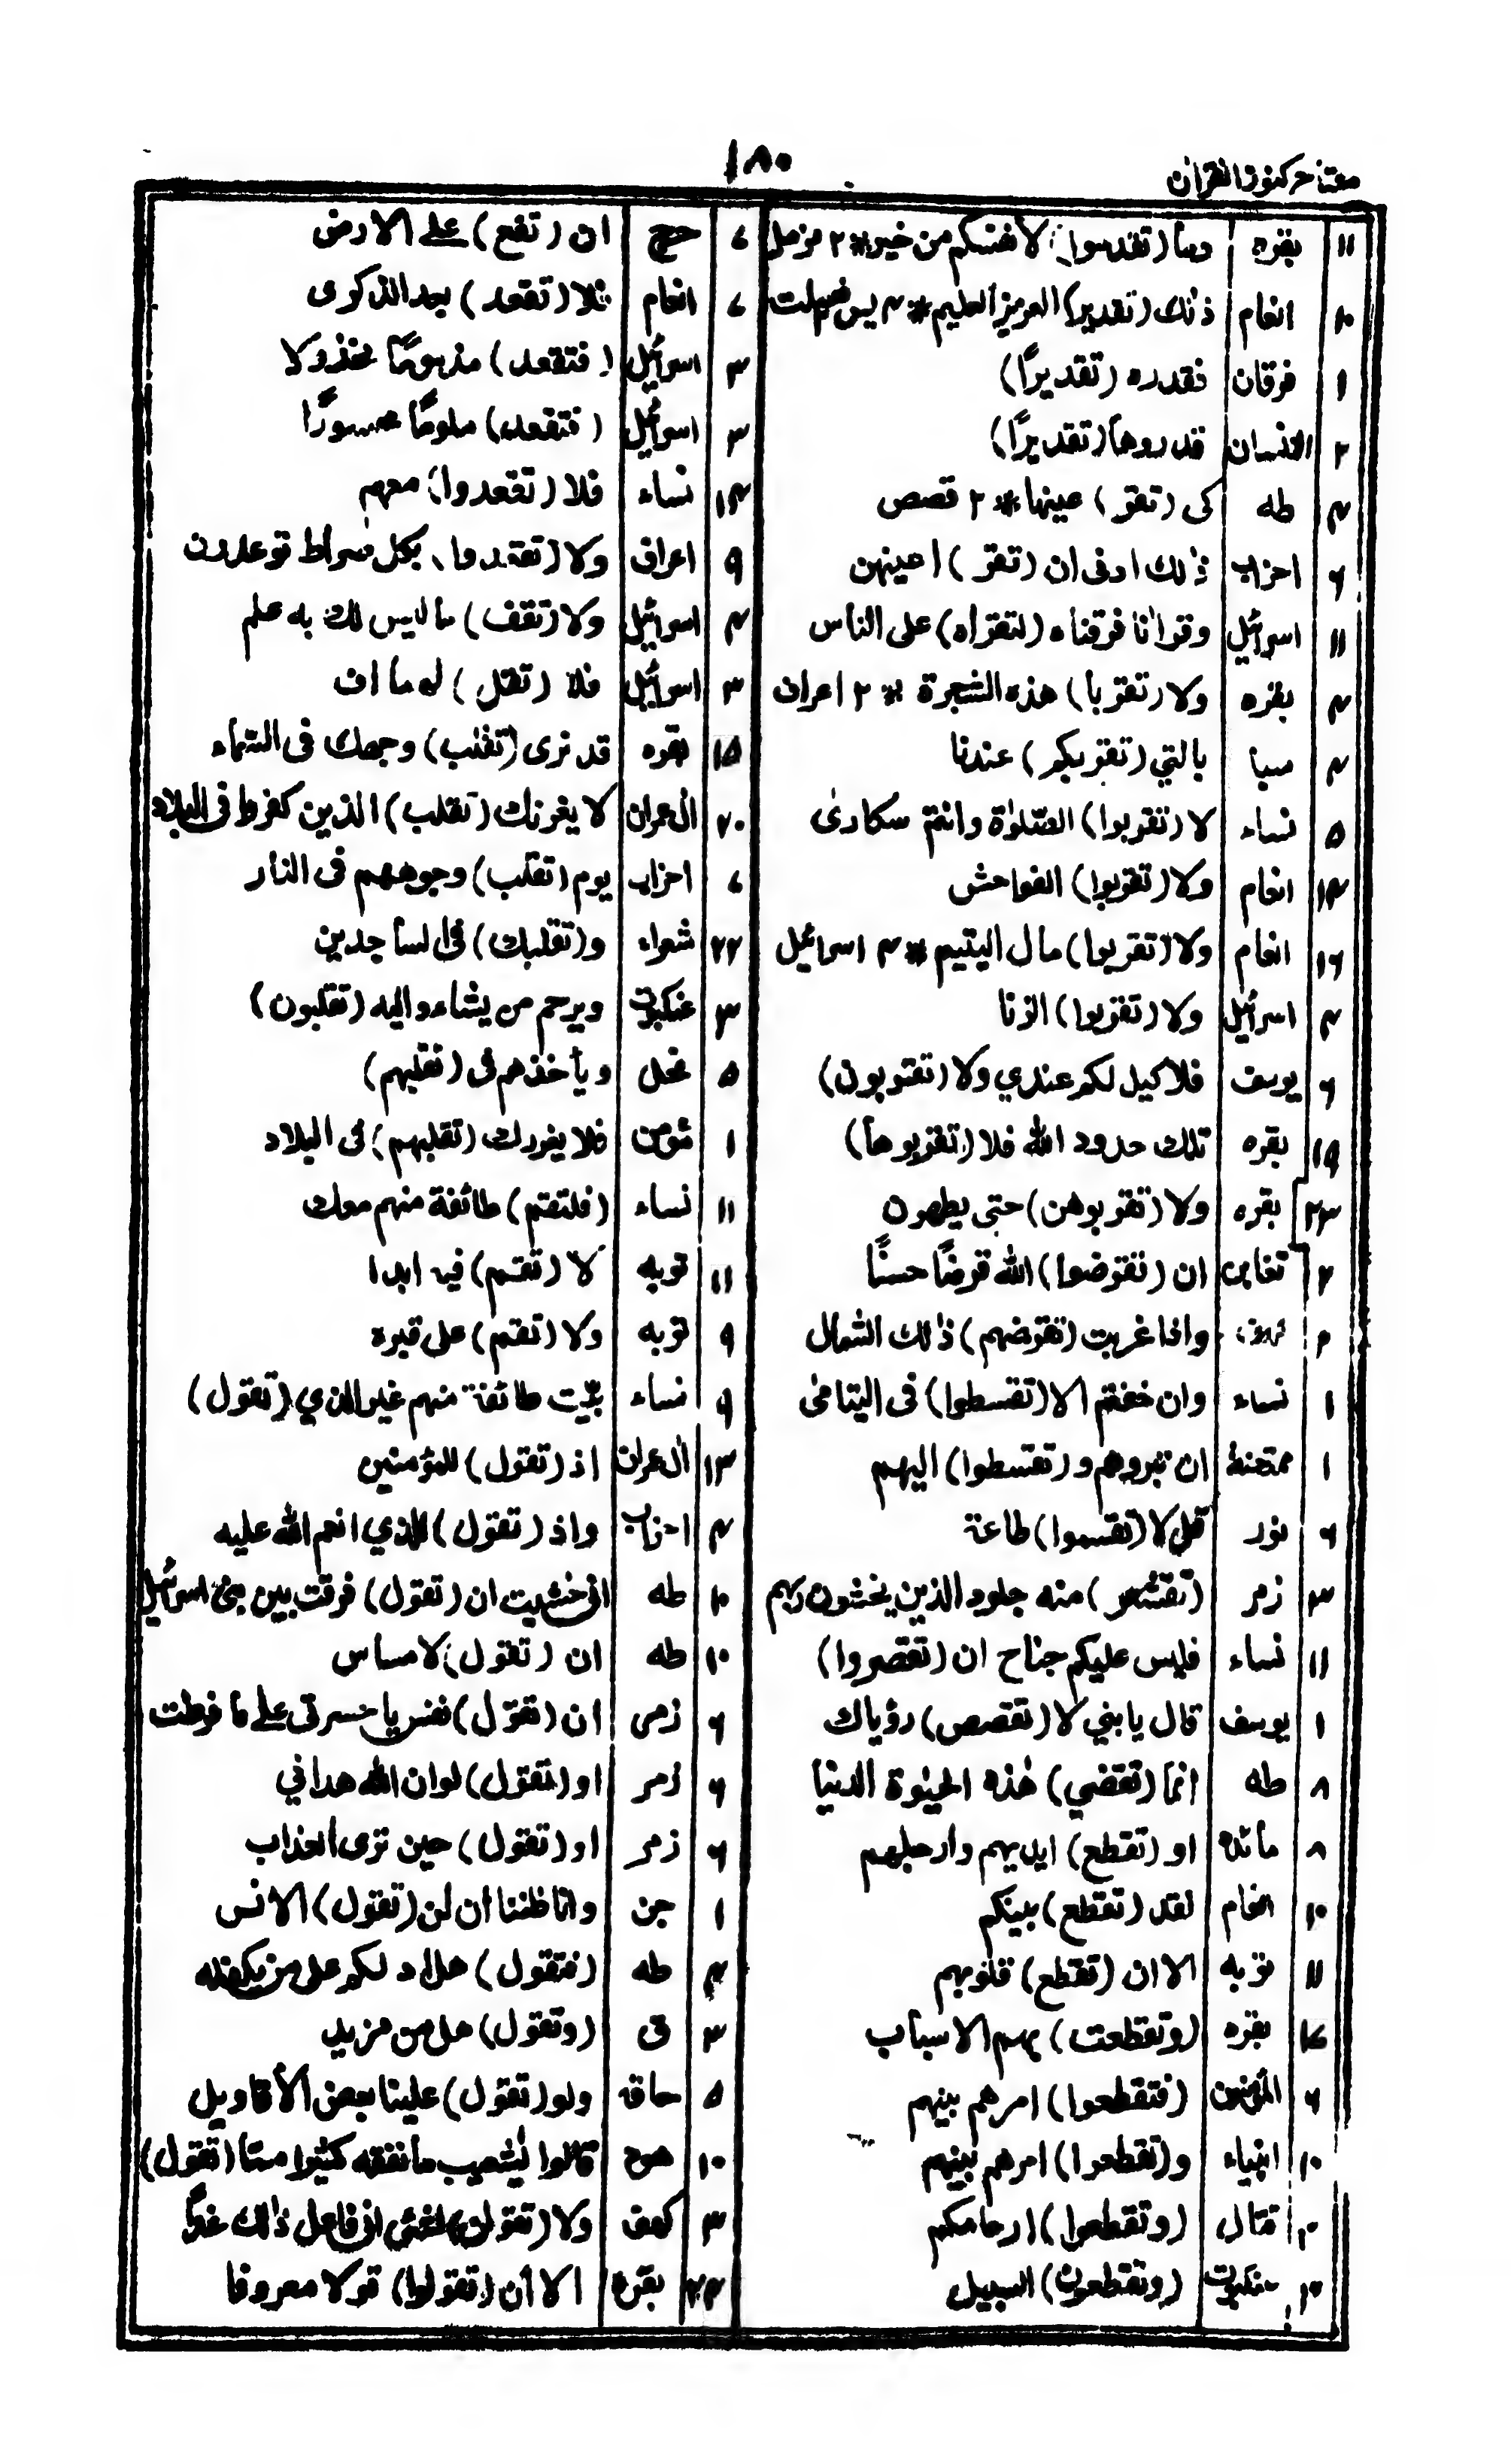 ١٨٠
مفتاح كنوز القران
١١ بقره وما (تقدموا) لأنفسكم من خير * ٢ مزمل
١٠ انعام ذلك (تقدير) العزيز العليم * ٣ يس فصلت
١ فرقان فقدره (تقديرًا)
٢ الانسان قدروها (تقديرًا)
٣ طه كى (تقر) عينها * ٢ قصص
٦ احزاب ذٰلك ادنى ان (تقر) اعينهن
١١ اسرائيل وقراٰنا فرقناه (لتقراه) على الناس
٤ بقره ولا (تقربا) هذه الشجرة * ٢ اعراف
٤ سبا بالتي (تقربكم) عندنا
٥ نساء لا (تقربوا) الصّلوٰة وانتم سكارىٰ
١٤ انعام ولا (تقربوا) الفواحش
١٦ انعام ولا (تقربوا) مال اليتيم * ٤ اسرائيل
٤ اسرائيل ولا (تقربوا) الزنا
٦ يوسف فلا كيل لكم عندي ولا (تقربون)
١٩ بقره تلك حدود الله فلا (تقربوها)
٢٣ بقره ولا (تقربوهن) حتى يطهرن
٢ تغابن ان (تقرضوا) الله قرضًا حسنًا
٢ واذا غربت (تقرضهم) ذٰلك الشمال
١ نساء وان خفتم الا (تقسطوا) فى اليتامىٰ
١ ممتحنة ان تبروهم و (تقسطوا) اليهم
٦ نور قل لا (تقسموا) طاعة
٣ زمر (تقشعر) منه جلود الذين يخشون ربهم
١١ نساء فليس عليكم جناح ان (تقصروا)
١ يوسف قال يا بني لا (تقصص) رؤياك
٨ طه انما (تقضي) هٰذه الحيٰوة الدنيا
٨ مائده او (تقطع) ايديهم وارجلهم
١٠ انعام لقد (تقطع) بينكم
١١ توبه الا ان (تقطع) قلوبهم
بقره (وتقطعت) بهم الاسباب
٦ المؤمنون (فتقطعوا) امرهم بينهم
١٠ انبياء و (تقطعوا) امرهم بينهم
قتال (وتقطعوا) ارحامكم
عنكبوت (وتقطعون) السبيل
٧ حج ان (تقع) على الارض
٧ انعام فلا (تقعد) بعد الذكرى
٣ اسرائيل (فتقعد) مذمومًا مخذولا
٣ اسرائيل (فتقعد) ملومًا محسورًا
١٤ نساء فلا (تقعدوا) معهم
٩ اعراف ولا (تقعدوا) بكل صراط توعدون
٤ اسرائيل ولا (تقف) ما ليس لك به علم
٣ اسرائيل فلا (تقل) لهما اف
١٥ بقره قد نرى (تقلب) وجهك فى السّماء
٢٠ اٰل عمران لا يغرنك (تقلب) الذين كفروا فى البلاد
٧ احزاب يوم (تقلب) وجوههم فى النار
٢٢ شعراء و (تقلبك) فى الساجدين
٣ عنكبوت ويرحم من يشاء واليه (تقلبون)
٥ نحل ويأخذهم فى (تقلبهم)
١ مؤمن فلا يغررك (تقلبهم) فى البلاد
١١ نساء (فلتقم) طائفة منهم معك
١١ توبه لا (تقم) فيه ابدا
٩ توبه ولا (تقم) على قبره
٩ نساء بيّت طائفة منهم غير الذي (تقول)
١٣ اٰل عمران اذ (تقول) للمؤمنين
٤ احزاب واذ (تقول) للذي انعم الله عليه
١٠ طه انى خشيت ان (تقول) فرقت بين بنى اسرائيل
١٠ طه ان (تقول) لا مساس
٦ زمر ان (تقول) نفس يا حسرتى على ما فرطت
٦ زمر او (تقول) لو ان الله هداني
٦ زمر او (تقول) حين ترى العذاب
١ جن وانا ظننا ان لن (تقول) الانس
٤ طه (فتقول) هل ادلكم على من يكفله
٣ ق (وتقول) هل من مزيد
٥ حاقه ولو (تقول) علينا بعض الأقاويل
١٠ هود قالوا يٰشعيب ما نفقه كثيرا ممّا (تقول)
٣ كهف ولا (تقولن) لشئى انى فاعل ذٰلك غدًا
بقره الا أن (تقولوا) قولا معروفا